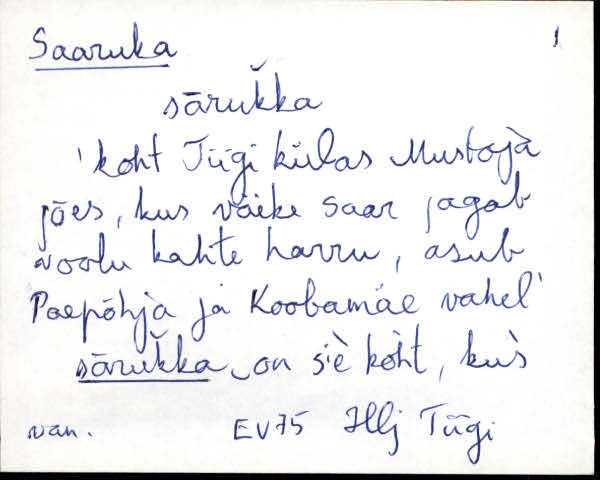 Saaruka 1
sāruk̆ka
'koht Tiigi külas Mustoja
jões, kus väike saar jagab
voolu kahte harru, asub
Paepõhja ja Koobamäe vahel'
sāruk̆ka on siè kòht, kus̀
van. EV75 Hlj Tiigi